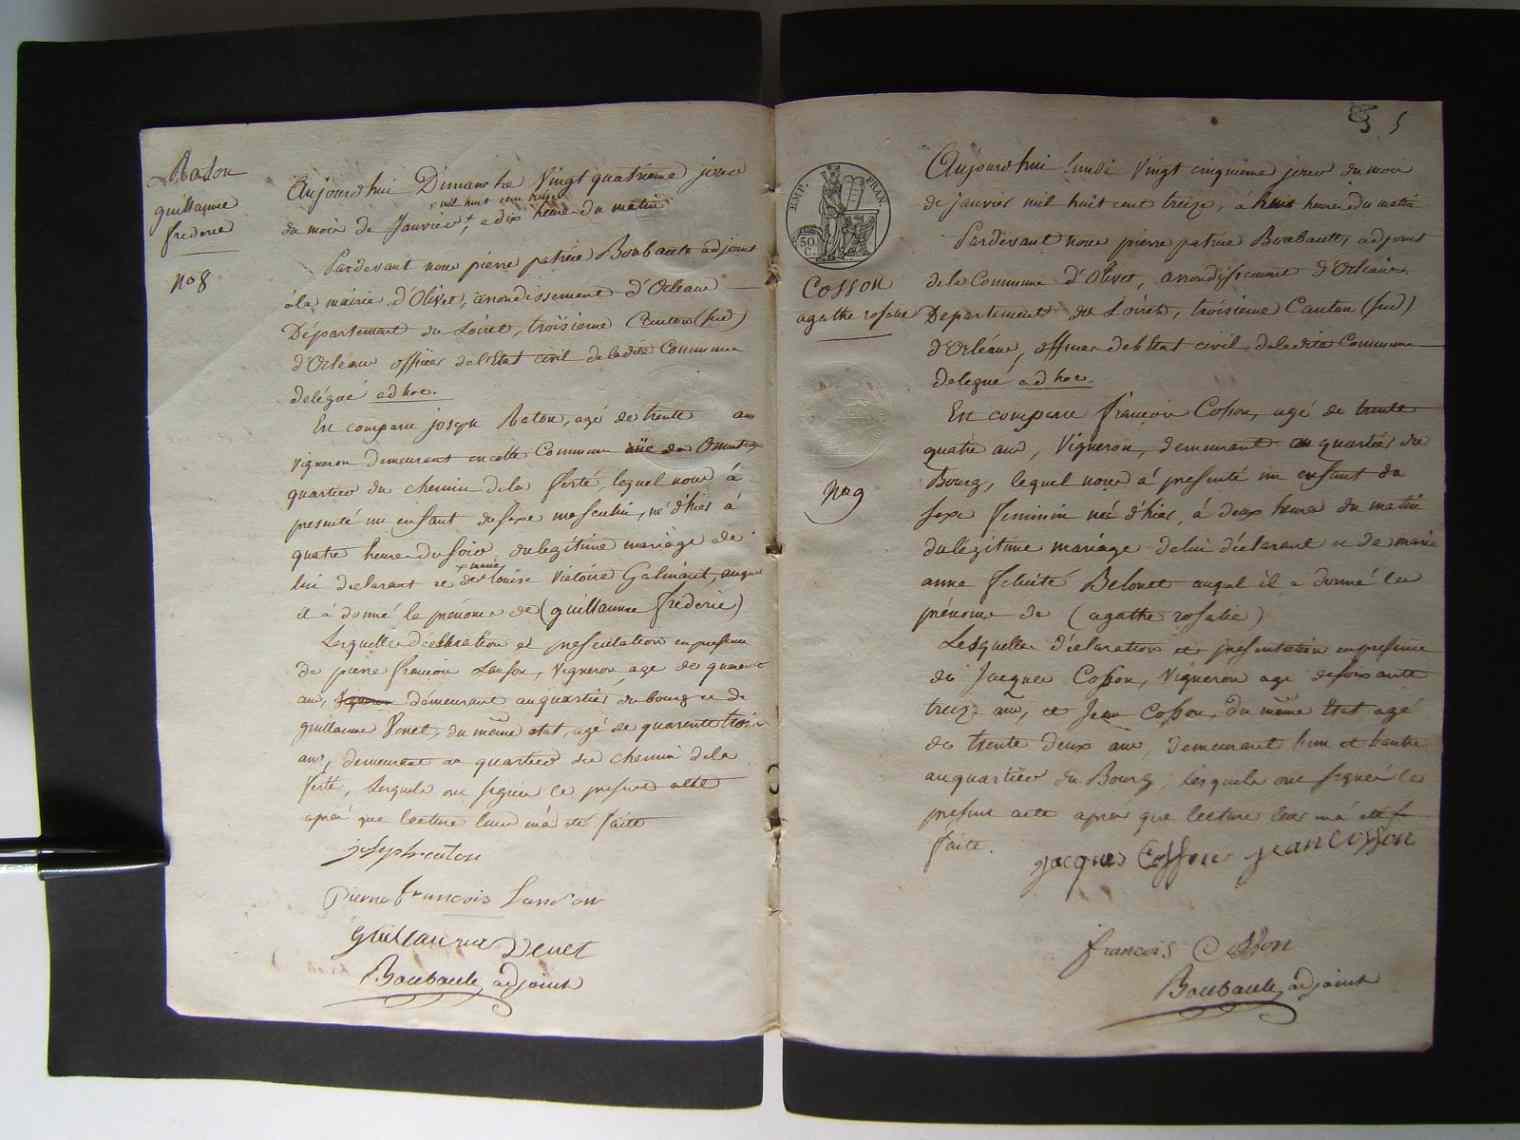 Raton
guillaume
frederic
no 8
Aujourd'hui Dimanche Vingt quatrieme jour
mil huit cent treize
du mois de Janvier, a dix heure du matin
Pardevant nous pierre patrice Boubault adjoint
à la mairie d'Olivet, arrondissement d'Orleans
Département du Loiret, troisieme Canton (sud)
d'Orléans officier de l'Etat civil de ladite Commune
délégué ad hoc.
Est comparu joseph Raton, agé de trente ans
vigneron demeurant en cette Commune
quartier du chemin de la ferté, lequel nous à
presenté un enfant du sexe masculin, né d'hier à
quatre heure du soir, du legitime mariage de
lui declarant et de Louise Victoire Galmant, auquel
il à donné le prénom de (guillaume frederic)
Lesquelles déclaration et presentation en presence
de pierre francois Lanson, Vigneron, age de quarante
ans, demeurant au quartier du bourg et de
guillaume Venet, du même etat, agé de quarente trois
ans, demeurant au quartier du chemin de la
ferté, lesquels ont signés le present acte
après que lecture leur en a eté faite
joseph raton
Pierre francois Lanson
guillaume Venet
Boubault, adjoint
5
EMP. FRAN.
50 C.
Cosson
agathe rosalie
no 9
Aujourd'hui lundi Vingt cinquième jour du mois
de janvier mil huit cent treize, à huit heures du matin
Pardevant nous pierre patrice Boubault, adjoint
de la Commune d'Olivet, arrondissement d'Orleans
Departement du Loiret, troisieme Canton (sud)
d'Orléans, officier de l'Etat civil de ladite Commune
délegué ad hoc.
Est comparu francois Cosson, agé de trente
quatre ans, Vigneron, demeurant au quartier du
Bourg, lequel nous à presenté un enfant du
sexe feminin né d'hier, à deux heures du matin
du légitime mariage de lui déclarant et de marie
anne felicité Belouet auquel il a donné les
prénoms de (agathe rosalie)
Lesquelles déclaration et presentation en presence
de Jacques Cosson, Vigneron agé de soixante
treize ans, et Jean Cosson, du même Etat agé
de trente deux ans, demeurant l'un et l'autre
au quartier du Bourg, lesquels ont signés le
present acte après que lecture leur en à eté
faite.
jacques Cosson jean cosson
francois Cosson
Boubault, adjoint